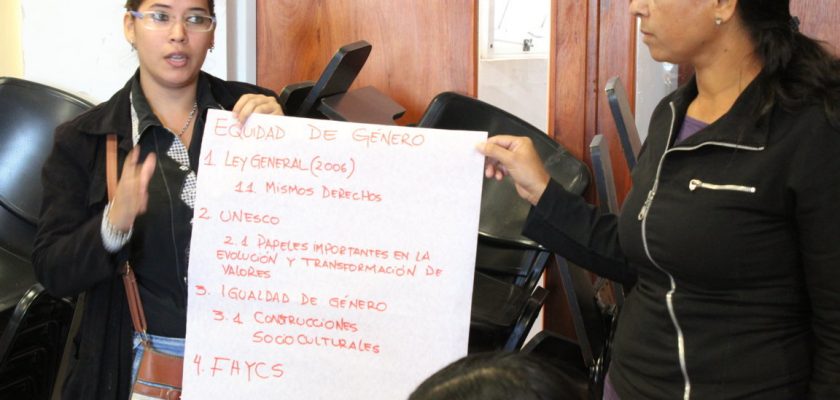 EQUIDAD DE GÉNERO
1. LEY GENERAL (2006)
1.1. MISMOS DERECHOS
2. UNESCO
2.1 PAPELES IMPORTANTES EN LA
EVOLUCIÓN Y TRANSFORMACIÓN DE
VALORES
3. IGUALDAD DE GÉNERO
3.1 CONSTRUCCIONES
SOCIOCULTURALES
4. FAYCS